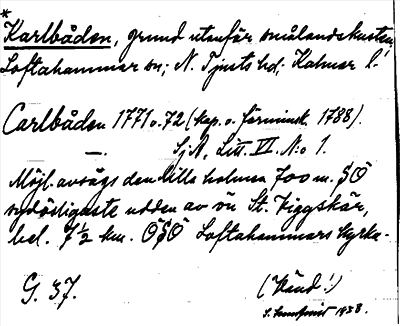 *
Karlbåden, grund utanför smålandskusten,
Loftahammar sn; N. Tjusts hd; Kalmar l.
Carlbåden 1771 o. 72 (kop. o. förminsk. 1788).
— SjA, Litt. VI. N:o 1.
Möjl. avsågs den lilla holmen 700 m. SÖ
sydöstligaste udden av ön St. Viggskär,
bel. 7½ km. ÖSÖ Loftahammars kyrka.
G. 37. (Känd!)
1938.